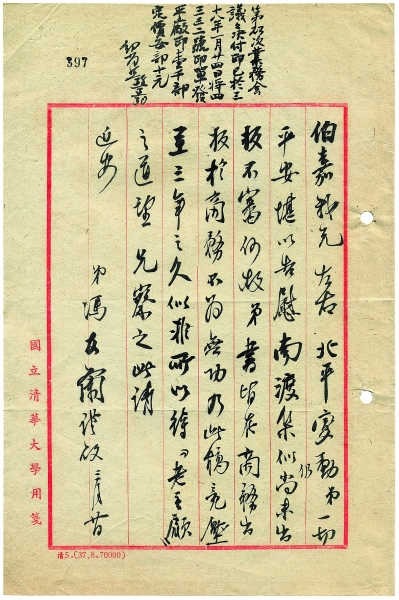 397
議決付印已於三
十八年一月廿四日將四
三三二號印單發
平廠印壹千部
定價每部十元
伯嘉我兄左右 北平變動弟一切仍
平安堪以告慰 南渡集似尚未出
板不審何故 弟書皆在商務出
板於商務不為無功乃此稿竟壓
至三年之久似非所以待「老主顧」
之道望 兄察之此請
近安
弟馮友蘭謹啟 三月廿
國立清華大學用箋
清5.(37,8.70000)